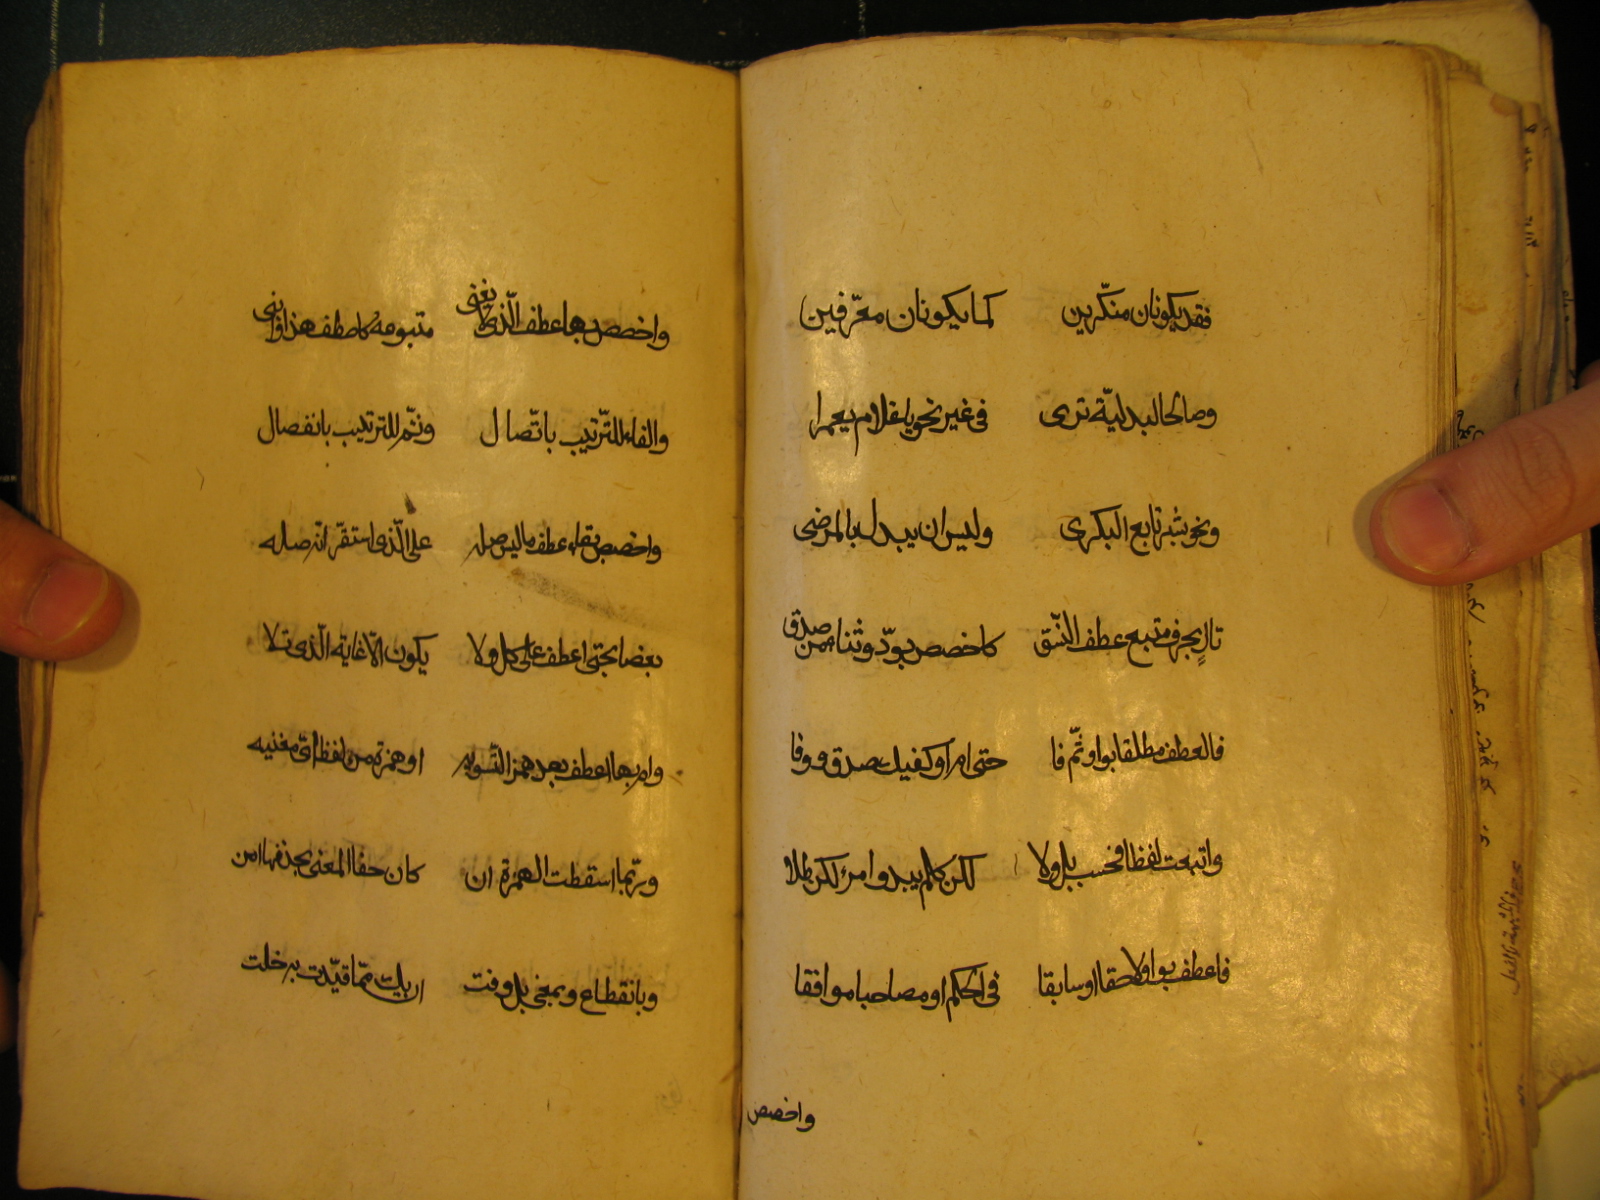 فقد يكونان منكّرين كما يكونان معرّفين
وصالحا لبدليّة ترى في غير نحو يا غلام يعمرا
ونحو بشر تابع البكري وليس ان يبدل بالمرضي
تال بحرف متبع عطف النّسق كاخصص بودّ وثناء من صدق
فالعطف مطلقا بواو ثمّ فا حتى ام او كفيك صدق ووفا
واتبعت لفظا فحسب بل ولا لكن كلم يبدو امرئ لكن طلا
فاعطف بواو لاحقا او سابقا في الحكم او مصاحبا موافقا
واخصص
واخصص بها عطف الّذي لا يغني متبوعه كاصطف هذا وابني
والفاء للتّرتيب باتّصال وثمّ للترتيب بانفصال
واخصص بفاء عطف ما ليس صله على الّذي استقرّ انّه صله
بعضا بحتى اعطف على كل ولا يكون الّا غاية الّذي تلا
وام بها اعطف بعد همز التّسويه او همزة من لفظ ايّ مغنيه
وربّما اسقطت الهمزة ان كان خفا المعنى بحذفها امن
وبانقطاع وبمعنى بل وفت ان يك ممّا قيّدت به خلت